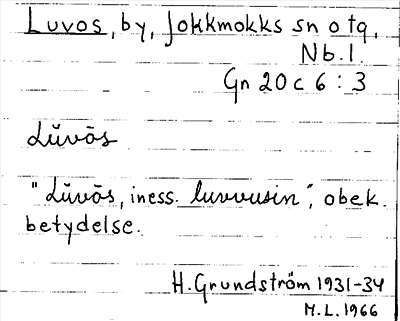 Luvos, by, Jokkmokks sn o tg,
Nb. l.
Gn 20 c 6 : 3
Lŭvōs
"Lŭvōs, iness. luvvusin", obek.
betydelse.
H. Grundström 1931-34
M. L. 1966